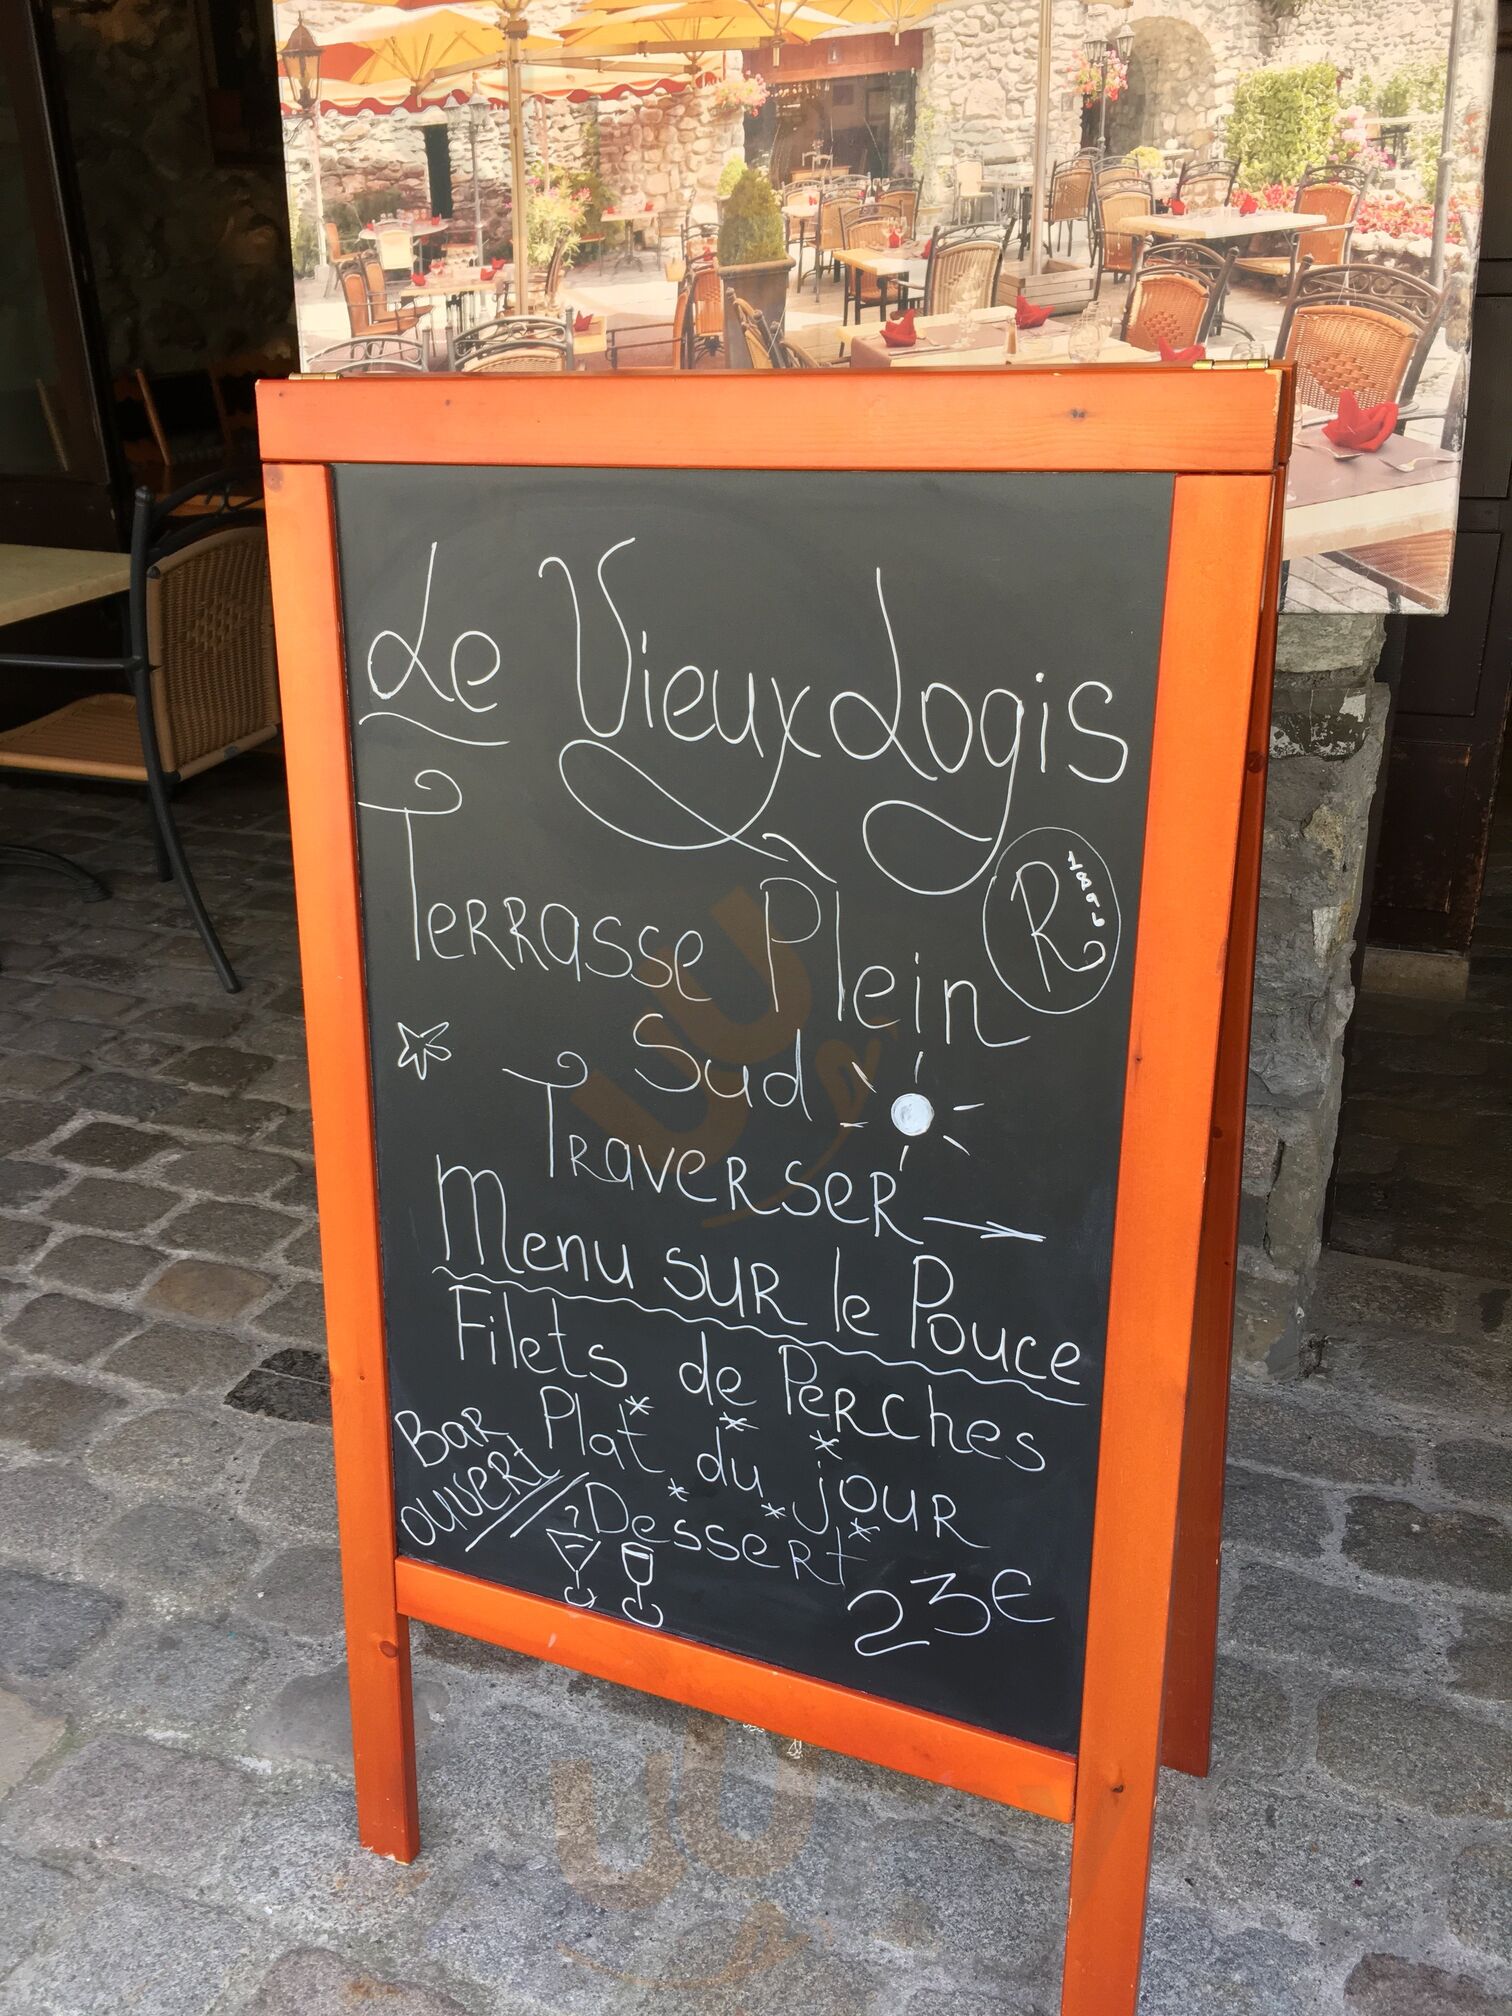 Le Vieux Logis
Terrasse Plein
Sud
Traverser
Menu sur le Pouce
Filets de Perches
Plat du jour
Dessert
23€
Bar
ouvert
R